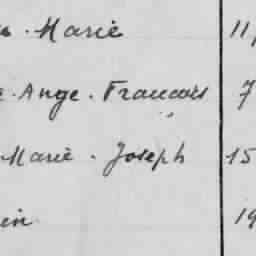 Marie 11
Ange. Francois 7
Marie. Joseph 15
19